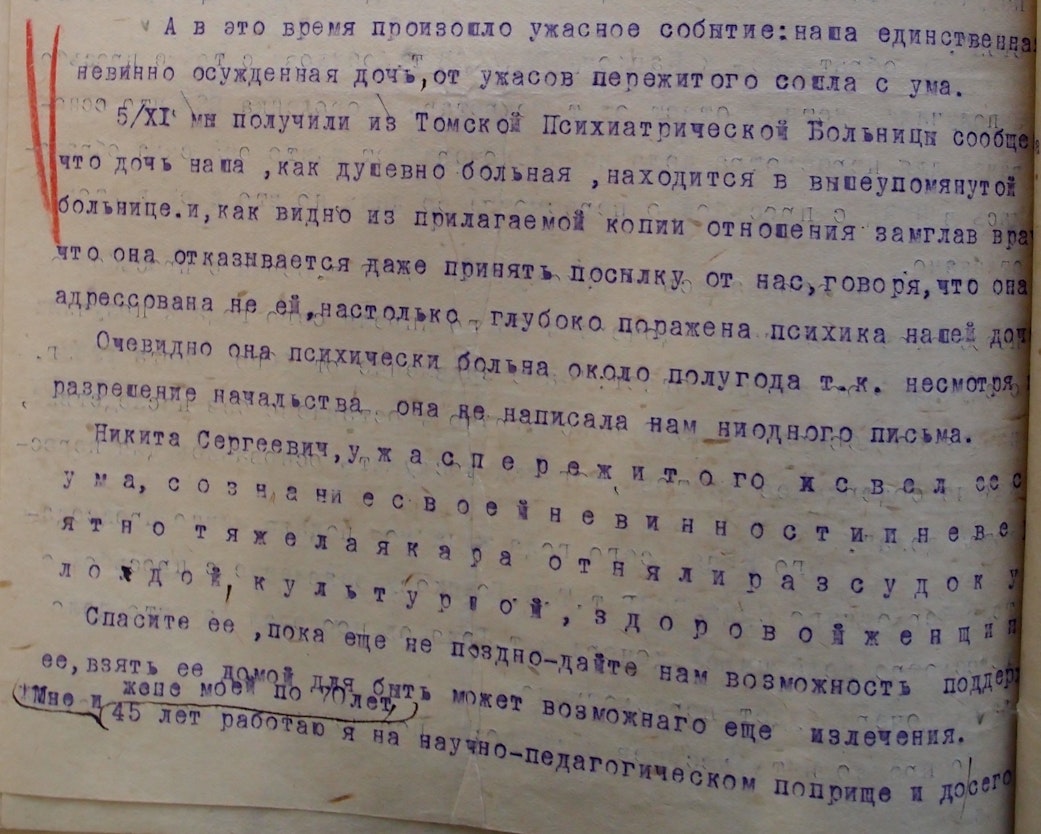 А в это время произошло ужасное событие:наша единственна
невинно осужденная дочь,от ужасов пережитого сошла с ума.
5/XI мы получили из Томской Психиатрической Больницы сообще
что дочь наша ,как душевно больная ,находится в вышеупомянутой
больнице.и,как видно из прилагаемой копии отношения замглав вра
что она отказывается даже принять посылку от нас,говоря,что она
адрессована не ей,настолько глубоко поражена психика нашей доч
Очевидно она психически больна около полугода т.к. несмотря
разрешение начальства она не написала нам ниодного письма.
Никита Сергеевич,у ж а с п е р е ж и т о г о и с в е л ее с
у м а, с о з н а н и е с в о е й н е в и н н о с т и и н е в е
я т н о т я ж е л а я к а р а о т н я л и р а з с у д о к у
л о д о й, к у л ь т у р н о й , з д о р о в о й ж е н щ и н
Спасите ее ,пока еще не поздно-дайте нам возможность поддер
ее,взять ее домой для быть может возможнаго еще излечения.
Мне и жене моей по 70 лет,
45 лет работаю я на научно-педагогическом поприще и до сего